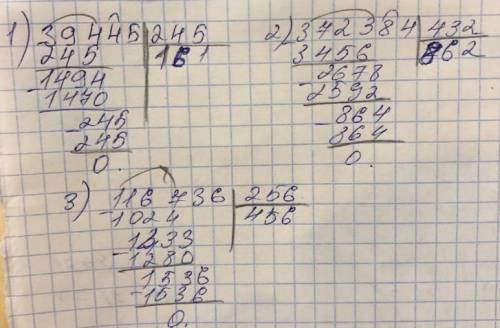 1) 39445 | 245
245 | 161
1494
1470
245
245
0.
2) 372384 | 432
3456 | 862
2678
2592
864
864
0.
3) 116736 | 256
1024 | 456
1433
1280
1536
1536
0.